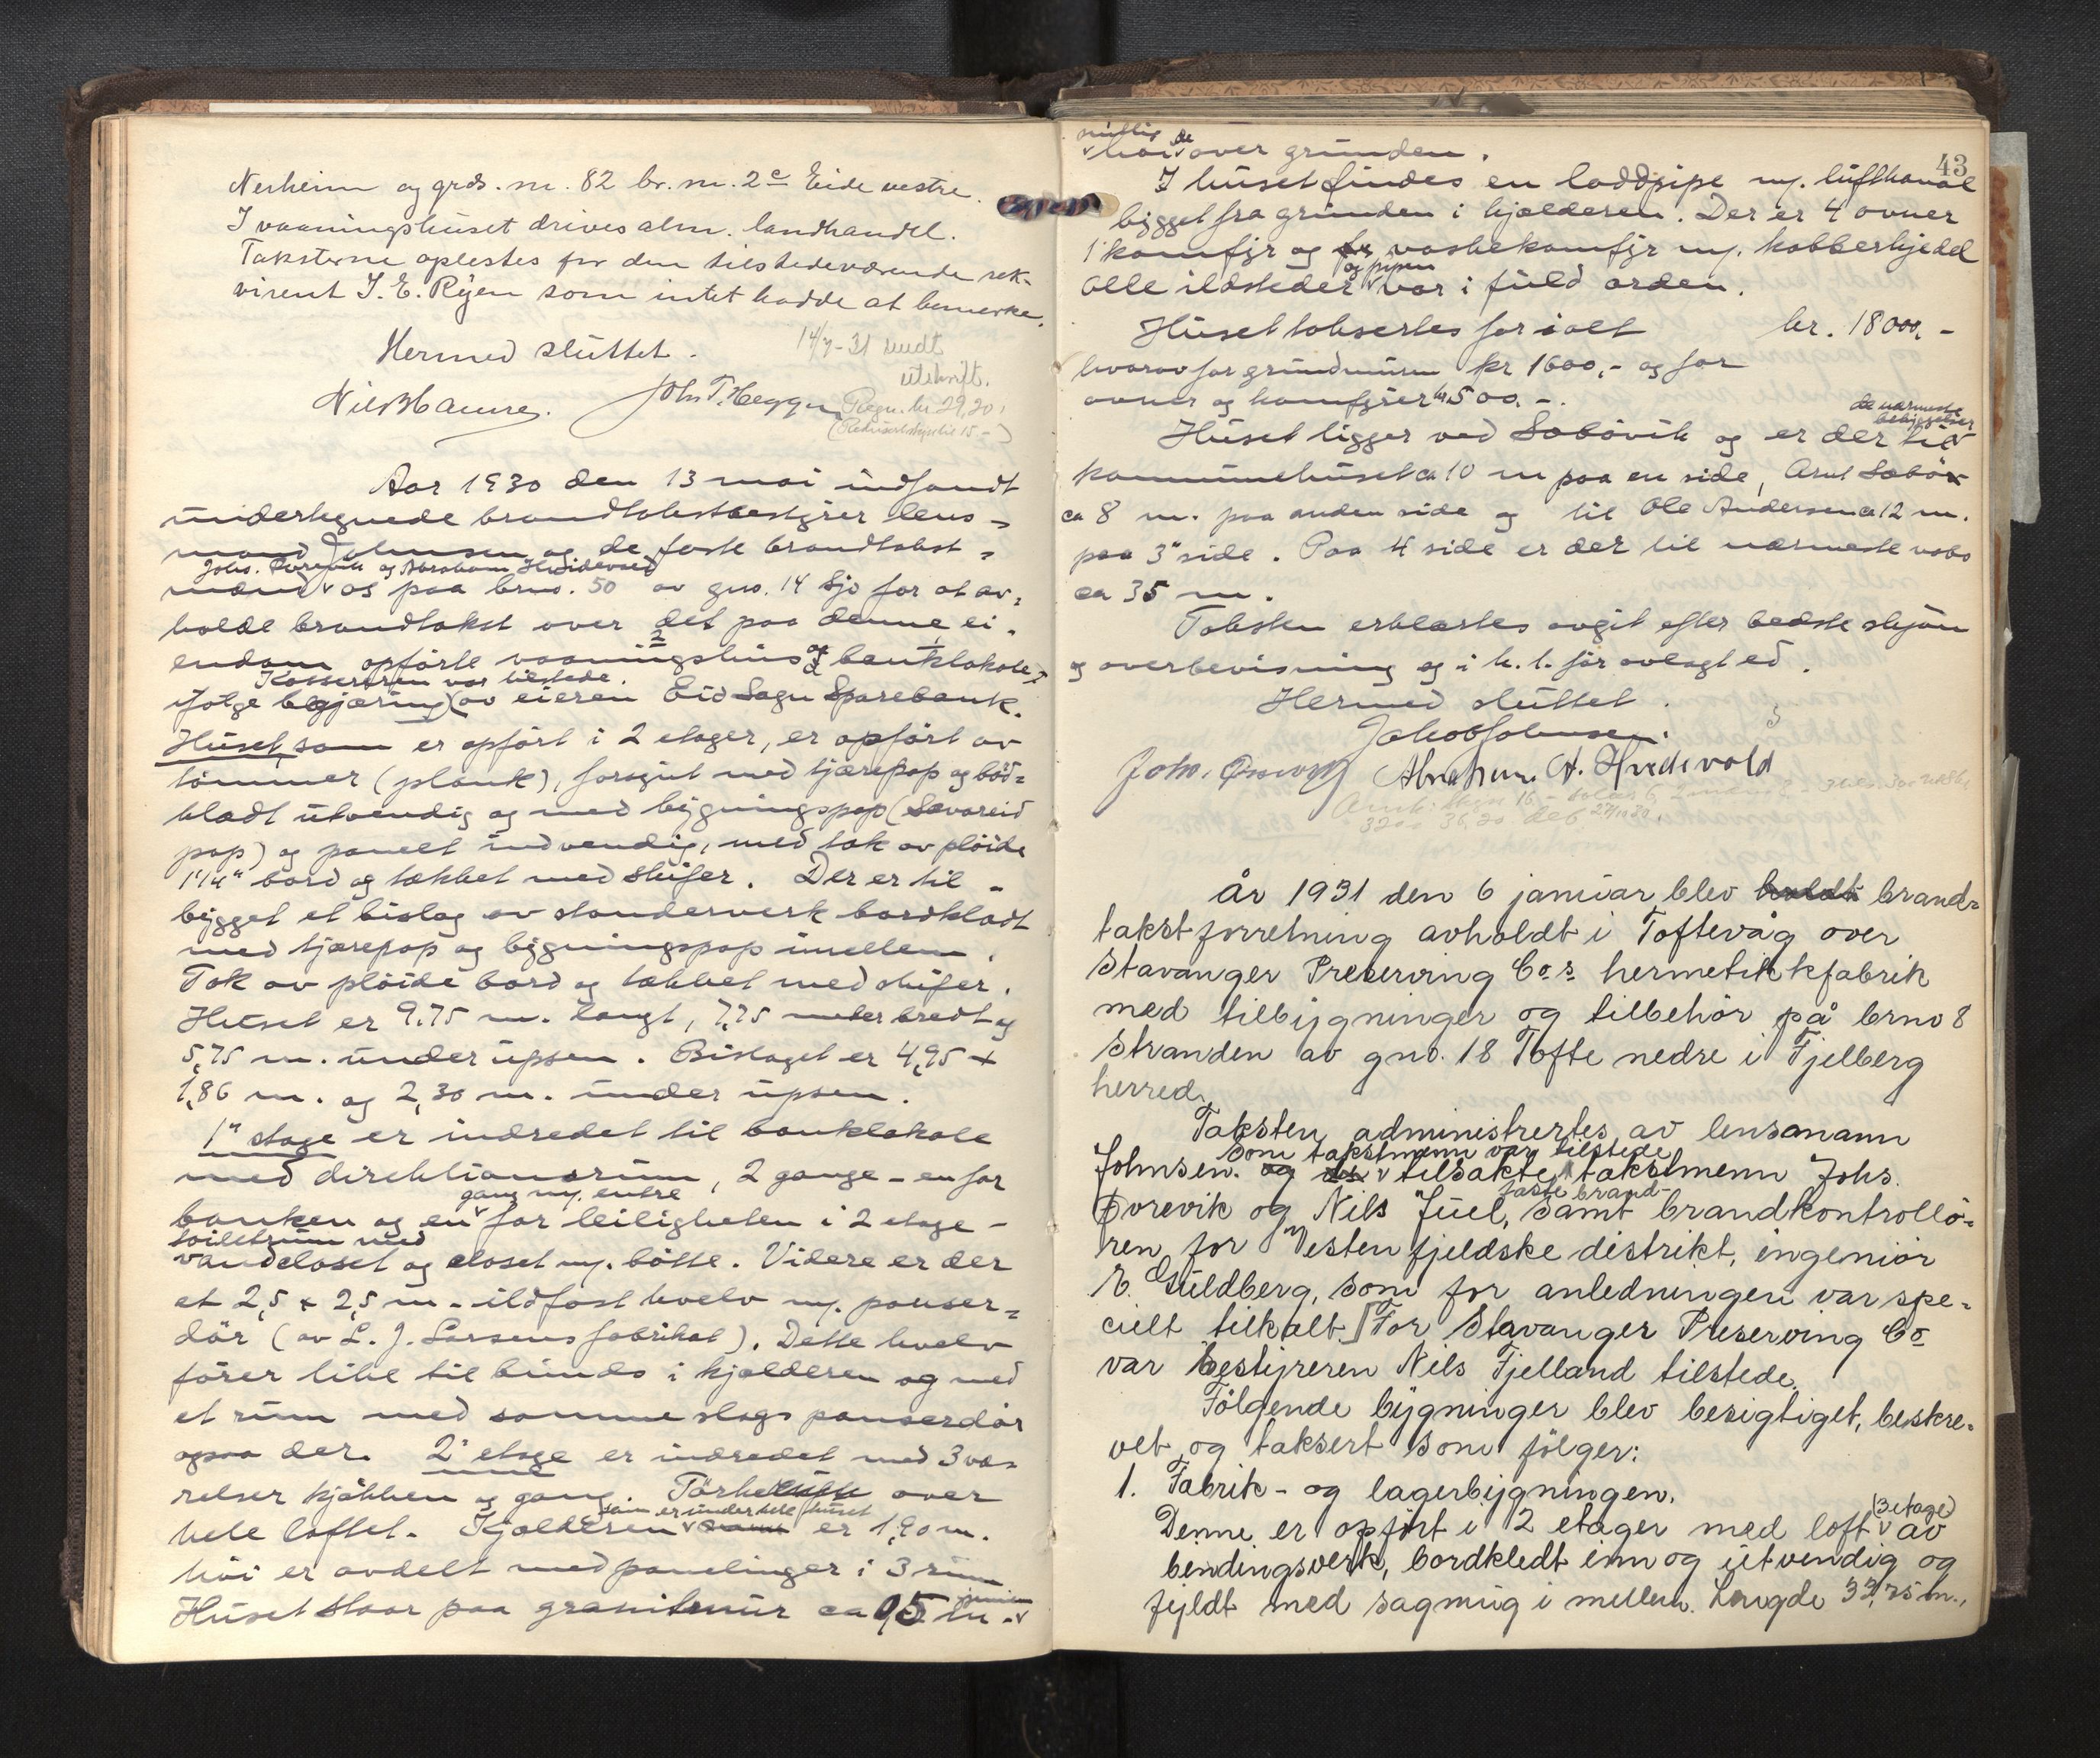 Nesheim og grds. nr. 82 br. nr. 2c Eide vestre.
I vaaningshuset drives alm. landhandel.
Taksterne oplestes for den tilstedeværende rek-
virent J. E. Rÿen som intet hadde at bemerke.
Hermed sluttet.
14/7-31 sendt
utskrift.
Regn. kr 29,20.
Aar 1930 den 13 mai indfandt
undertegnede brandtakstbestyrer lens-
mand Johnsen og de faste brandtakst-
Johs.Ørevik og Abraham Hvidevold
mænd os paa brno. 50 av gno. 14 Sjo for at av-
holde brandtakst over det paa denne ei-
endom opførte vaaningshus og banklokale
Kassereren var tilstede.
ifølge begjæring av eieren Eid Sogn Sparebank.
Huset, som er opført i 2 etager, er opført av
tømmer (plank), forsynt med tjærepap og bord-
kladt utvendig og med bygningspap (Sævareid
pap) og panelt indvendig, med tak av pløide
1 1/4" bord og tækket med skifer. Der er til-
bygget et bislag av standerverk bordklædt
med tjærepap og bygningspap imellem.
Tak av pløide bord og tækket med skifer.
Huset er 9,75 m. langt, 7,75 meter bredt og
5,75 m. under upsen. Bislaget er 4,95 x
1,86 m. og 2,30 m. under upsen.
1" etage er indredet til banklokale
med direktionsrum, 2 gange - en for
gang m/. entre
banken og en for leiligheten i 2 etage -
toiletrum med
vandcloset og closet m/. bøtte. Videre er der
et 2,5 x 2,5 m. ildfast hvelv m/. panser-
dør (av L. J. Larsens fabrikat). Dette hvelv
fører like til bunds i kjælderen og med
et rum med samme slags panserdør
ogsaa der. 2' etage er indredet med 3 væ-
relser kjøkken og gang. Tørkelufte over
som er under hele huset
hele loftet. Kjælderen er 1,90 m.
høi er avdelt med panelinger i 3 rum
Huset staar paa granitmur ca 0,5 m.
43
høide over grunden.
I huset findes en loddpipe m/. luftkanal
bygget fra grunden i kjælderen. Der er 4 ovner
1 komfyr og vaskekomfyr m/. kobberkjedel
og pipen
alle ildsteder var i fuld orden.
Huset takseres for ialt kr. 18000,-
hvorav for grundmuren kr 1600,- og for
ovner og komfyrer kr 500,-.
de nærmeste
bebyggelser
Huset ligger ved Sæbøvik og er der til
kommunehuset ca 10 m paa en side, Arnt Sæbø
ca 8 m. paa anden side og til Ole Andersen ca 12 m.
paa 3" side. Paa 4 side er der til nærmeste nabo
ca 35 m.
Taksten erklærtes avgit efter bedste skjøn
og overbevisning og i h. t. før avlagt ed.
Hermed sluttet.
Jakob Johnsen.
Johs. Ørevik Abraham A. Hvidevold
år 1931 den 6 januar blev brand-
takstforretning avholdt i Toftevåg over
Stavanger Preserving Co.s hermetikkfabrik
med tilbygninger og tilbehør på brno 8
Stranden av gno. 18 Tofte nedre i Fjelberg
herred.
Taksten administrertes av lensmann
som takstmenn var tilstede
Johnsen. og tilsakte takstmenn Johs.
faste brand-
Ørevik og Nils Juel, samt brandkontrollø-
ren for Vestenfjeldske distrikt, ingeniør
E. Guldberg, som for anledningen var spe-
cielt tilkalt. For Stavanger Preserving Co
var bestyreren Nils Fjelland tilstede.
Følgende bygninger blev besigtiget, beskre-
vet og taksert som følger:
1. Fabrik- og lagerbygningen.
(3 etage)
Denne er opført i 2 etager med loft av
bindingsverk, bordkledt inn og utvendig og
fyldt med sagmug i mellem. Længde 33,75 m.,